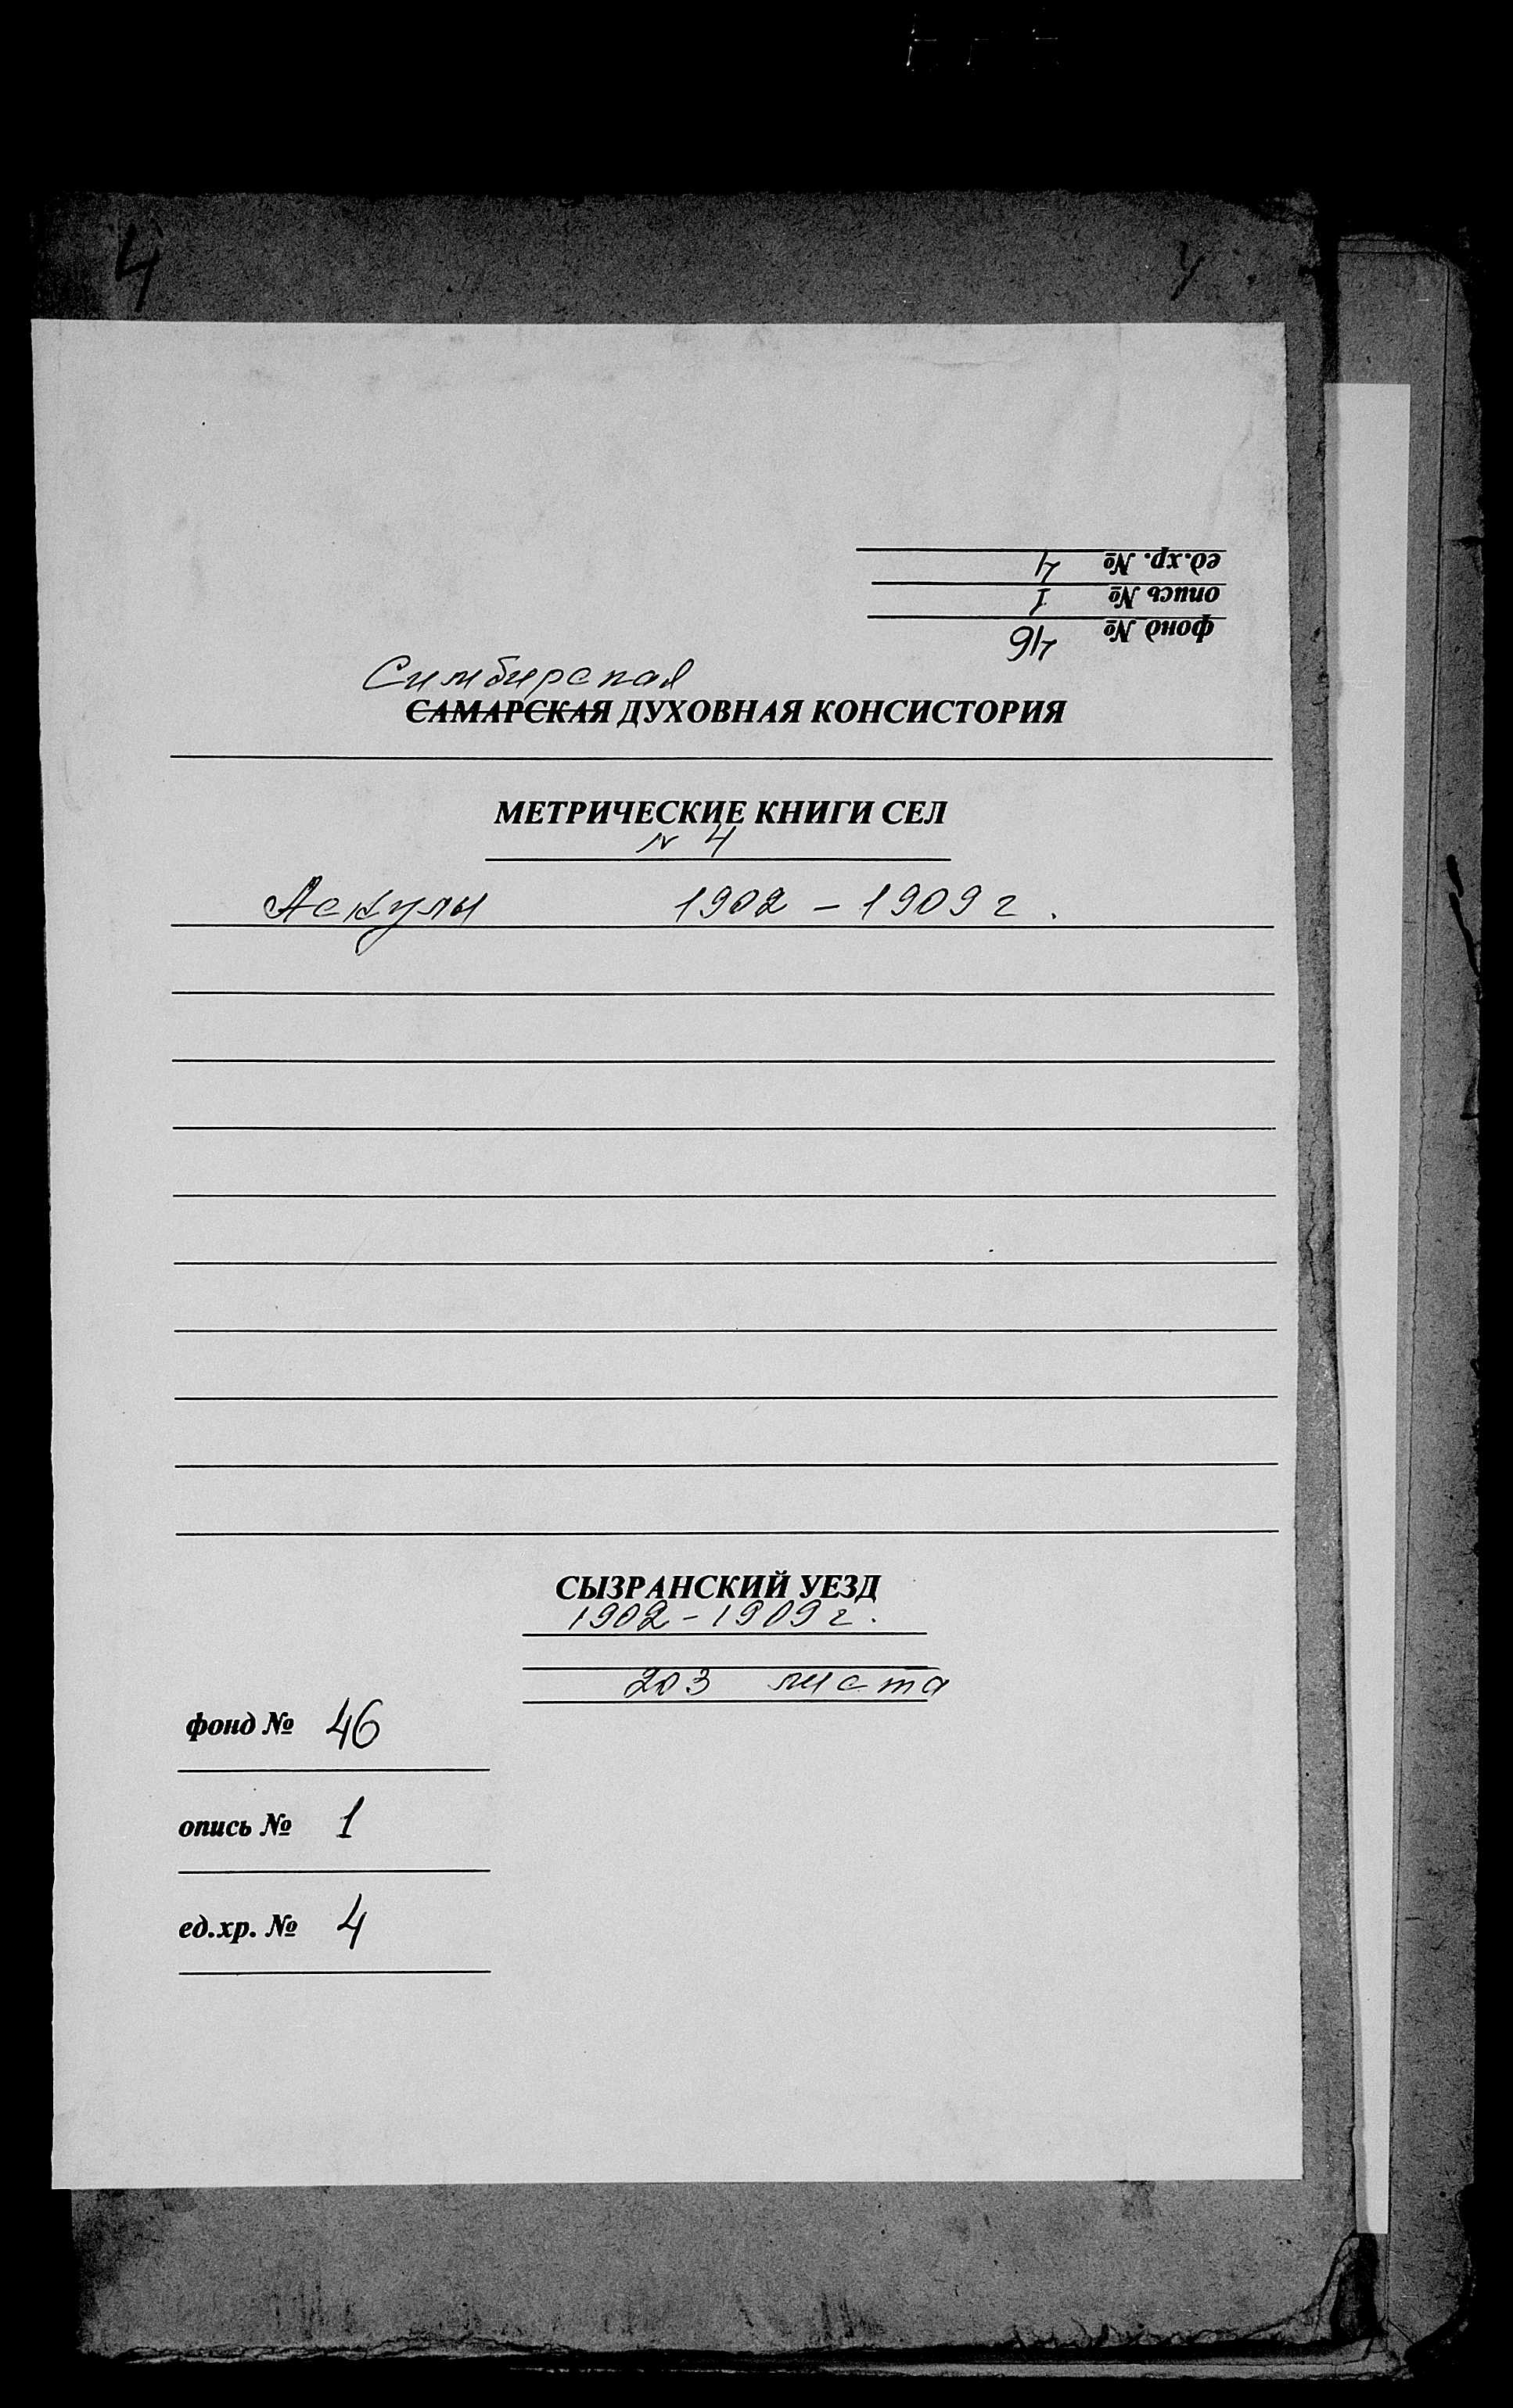 4 4
ед.хр. № 4
опись № 1
фонд № 46
Симбирская
САМАРСКАЯ ДУХОВНАЯ КОНСИСТОРИЯ
МЕТРИЧЕСКИЕ КНИГИ СЕЛ
N 4
Аскулы 1902 - 1909 г.
СЫЗРАНСКИЙ УЕЗД
1902 - 1909 г.
203 листа
фонд № 46
опись № 1
ед.хр. № 4